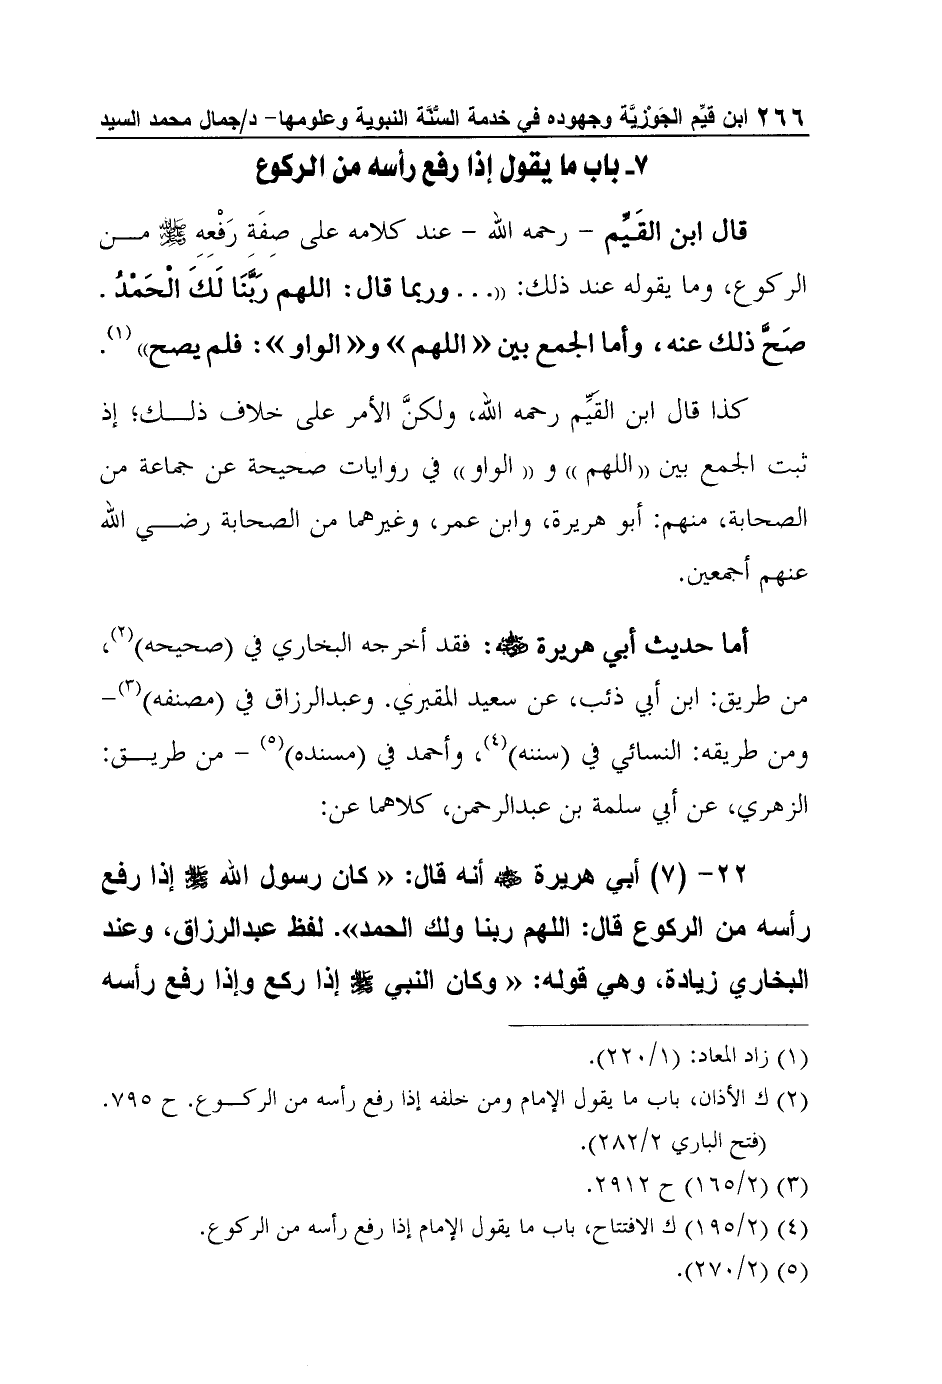 ٢٦٦ ابن قيِّم الجَوْزيَّة وجهوده في خدمة السنَّة النبوية وعلومها- د/جمال محمد السيد
٧ـ باب ما يقول إذا رفع رأسه من الركوع
قال ابن القَيِّم – رحمه الله – عند كلامه على صِفَةِ رَفْعِهِ ﷺ مـــن
الركوع، وما يقوله عند ذلك: «... وربما قال: اللهم رَبَّنَا لَكَ الْحَمْدُ .
صَحَّ ذلك عنه، وأما الجمع بين « اللهم » و« الواو »: فلم يصح»(١).
كذا قال ابن القَيِّم رحمه الله، ولكنَّ الأمر على خلاف ذلــك؛ إذ
ثبت الجمع بين «اللهم » و « الواو » في روايات صحيحة عن جماعة من
الصحابة، منهم: أبو هريرة، وابن عمر، وغيرهما من الصحابة رضــي الله
عنهم أجمعين.
أما حديث أبي هريرة ﵁: فقد أخرجه البخاري في (صحيحه)(٢)،
من طريق: ابن أبي ذئب، عن سعيد المقبري. وعبدالرزاق في (مصنفه)(٣)–
ومن طريقه: النسائي في (سننه)(٤)، وأحمد في (مسنده)(٥) – من طريــق:
الزهري، عن أبي سلمة بن عبدالرحمن، كلاهما عن:
٢٢- (٧) أبي هريرة ﵁ أنه قال: « كان رسول الله ﷺ إذا رفع
رأسه من الركوع قال: اللهم ربنا ولك الحمد». لفظ عبدالرزاق، وعند
البخاري زيادة، وهي قوله: « وكان النبي ﷺ إذا ركع وإذا رفع رأسه
(١) زاد المعاد: (٢٢٠/١).
(٢) ك الأذان، باب ما يقول الإمام ومن خلفه إذا رفع رأسه من الركــوع. ح ٧٩٥.
(فتح الباري ٢٨٢/٢).
(٣) (١٦٥/٢) ح ٢٩١٢.
(٤) (١٩٥/٢) ك الافتتاح، باب ما يقول الإمام إذا رفع رأسه من الركوع.
(٥) (٢٧٠/٢).